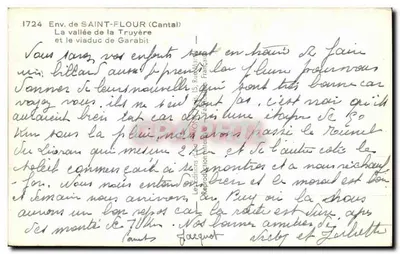 1724 Env. de SAINT-FLOUR (Cantal)
La vallée de la Truyère
et le viaduc de Garabit
Vous savez, vos enfants sont en train de faire
un billard aussi je prends la plume pour vous
donner de leurs nouvelles qui sont très bonnes car
voyez vous, ils ne s'en font pas. c'est vrai qu'ils
auraient bien tort car après une étape de 130
Km sous la pluie, nous avons passé le tunnel
du Lioran qui mesure 2 Km et de l'autre côté le
soleil commençait à se montrer et a nous réchauf
fer. Nous nous entendons bien et le moral est bon
et demain nous arrivons au Puy où là nous
aurons un bon repos car la route est dure, après
des montées de 70 km. Nos bonnes amitiés de
Jacques et Juliette